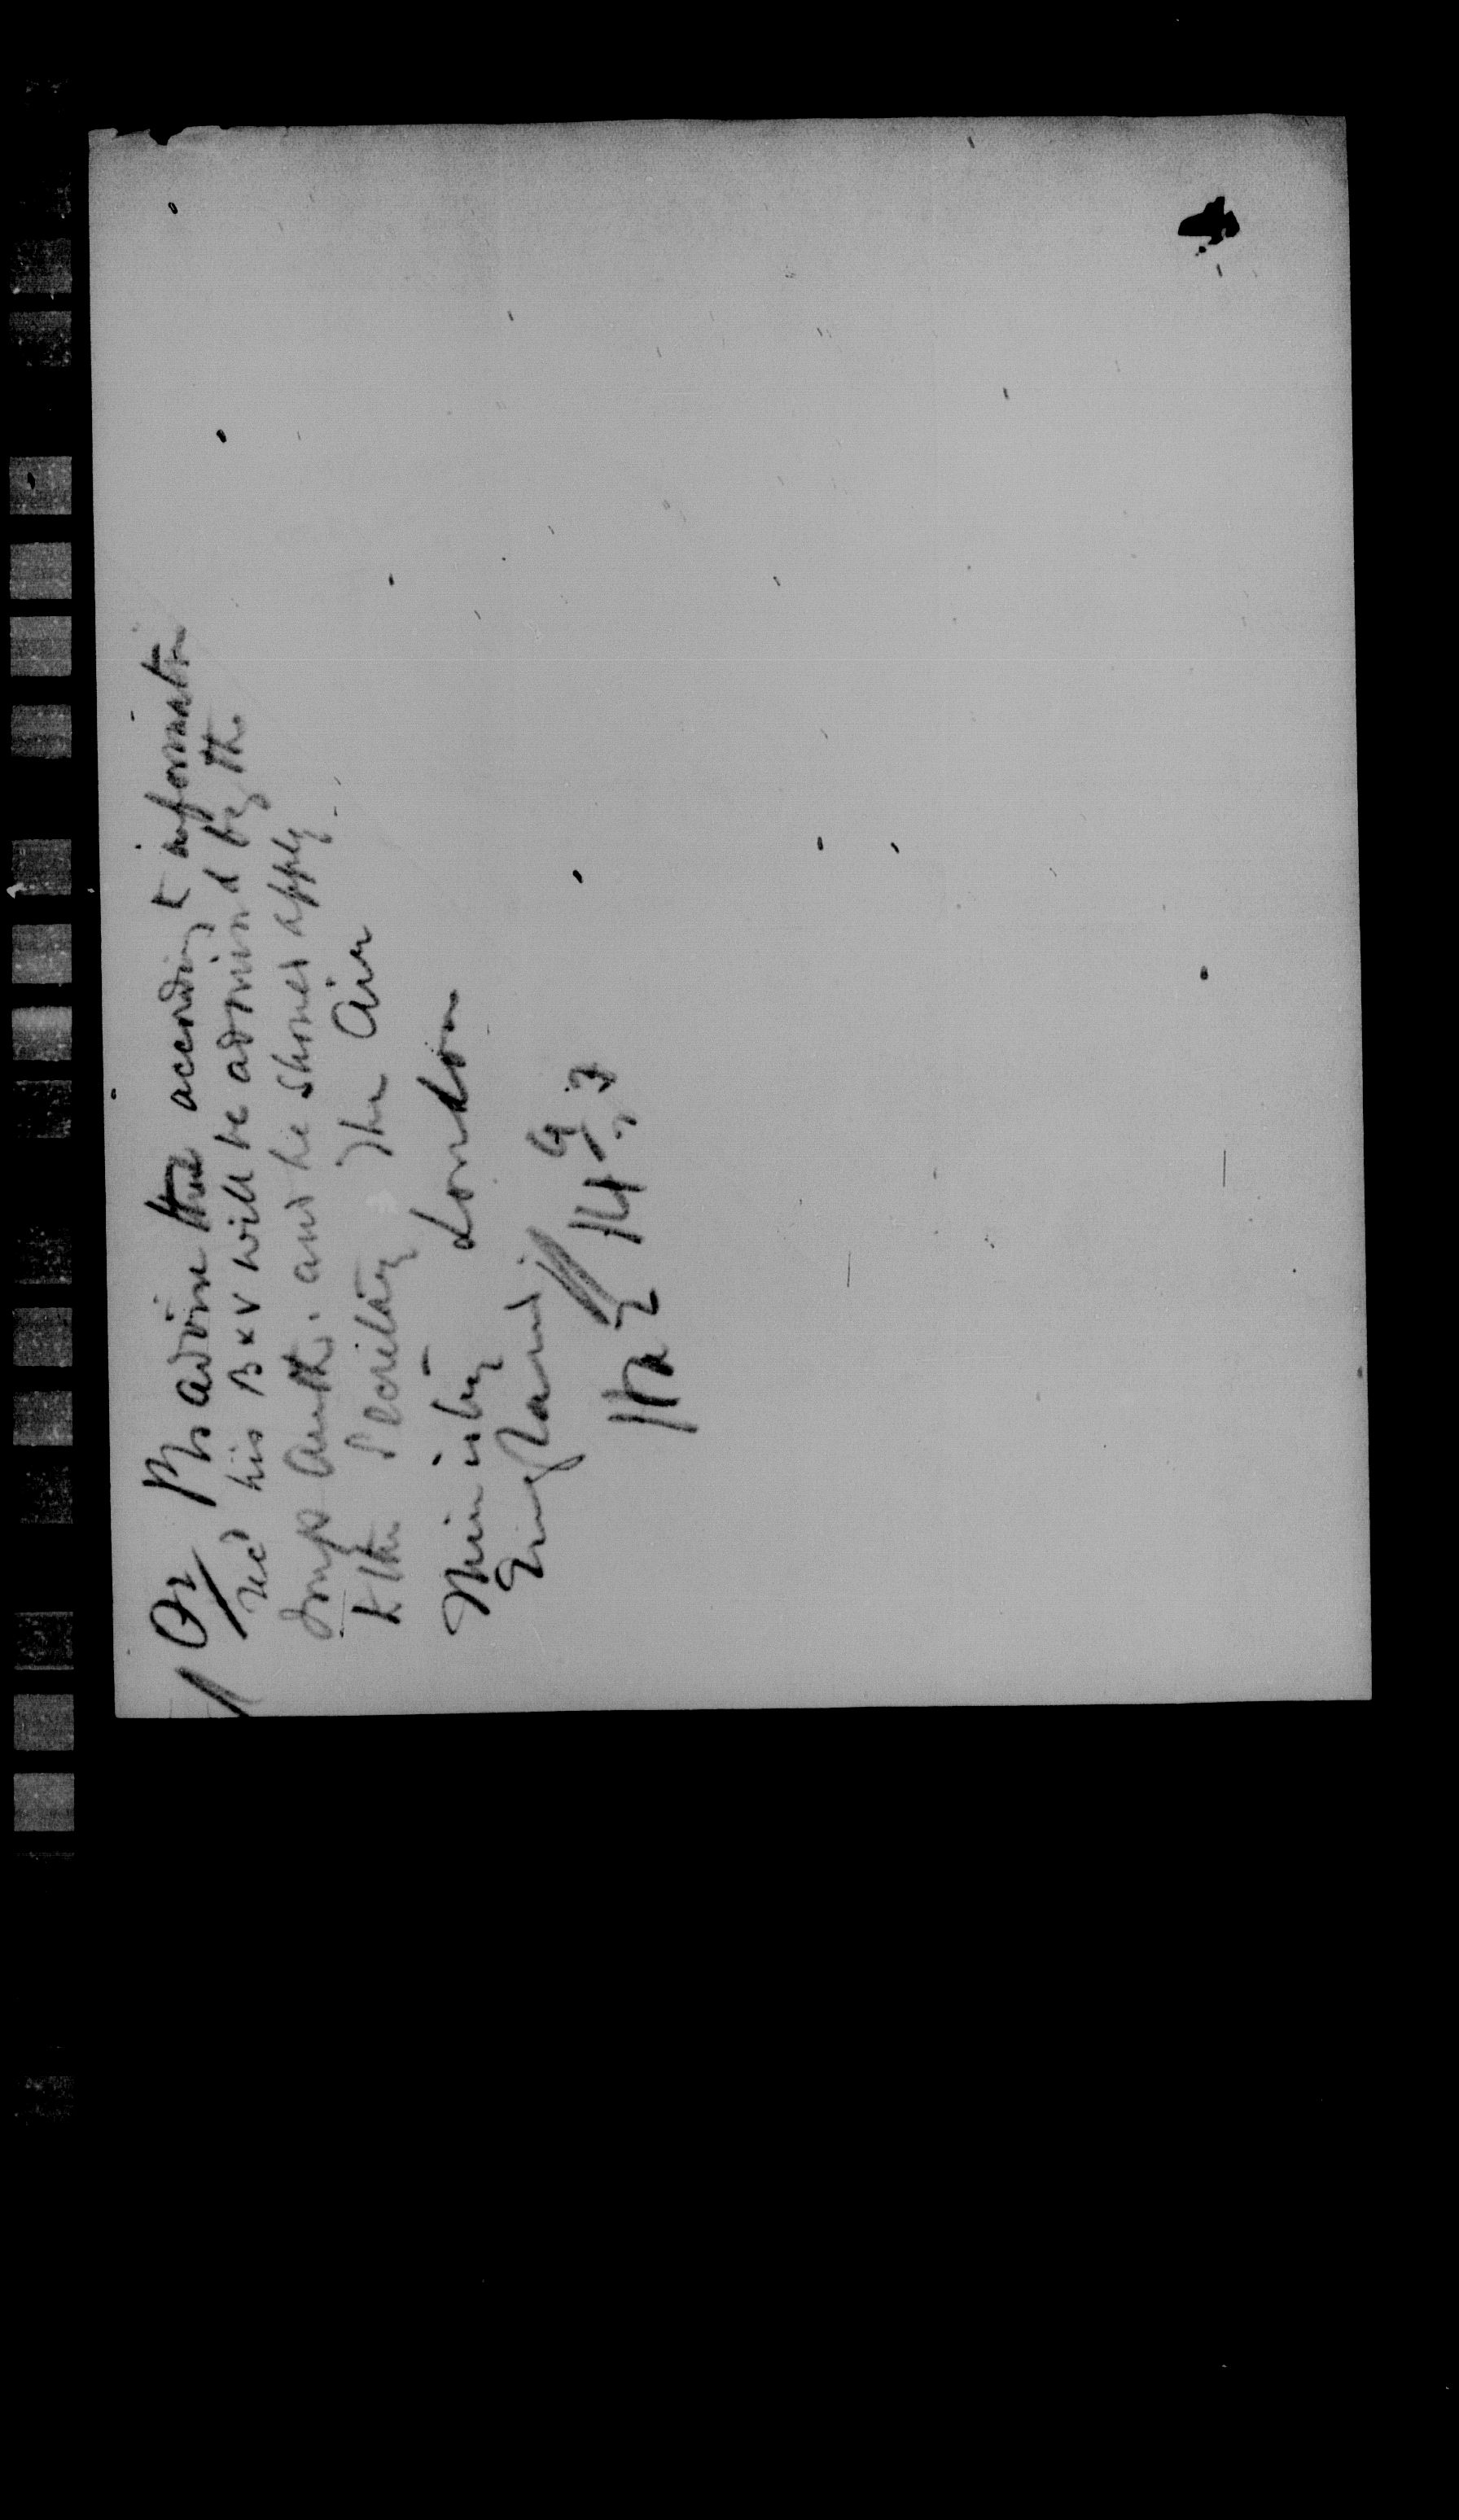 Pls advise that according t information
recd his B & V will be adminsd by the
Imp Auth. and he should apply
t the Secretary The Air
Ministry London
England
14